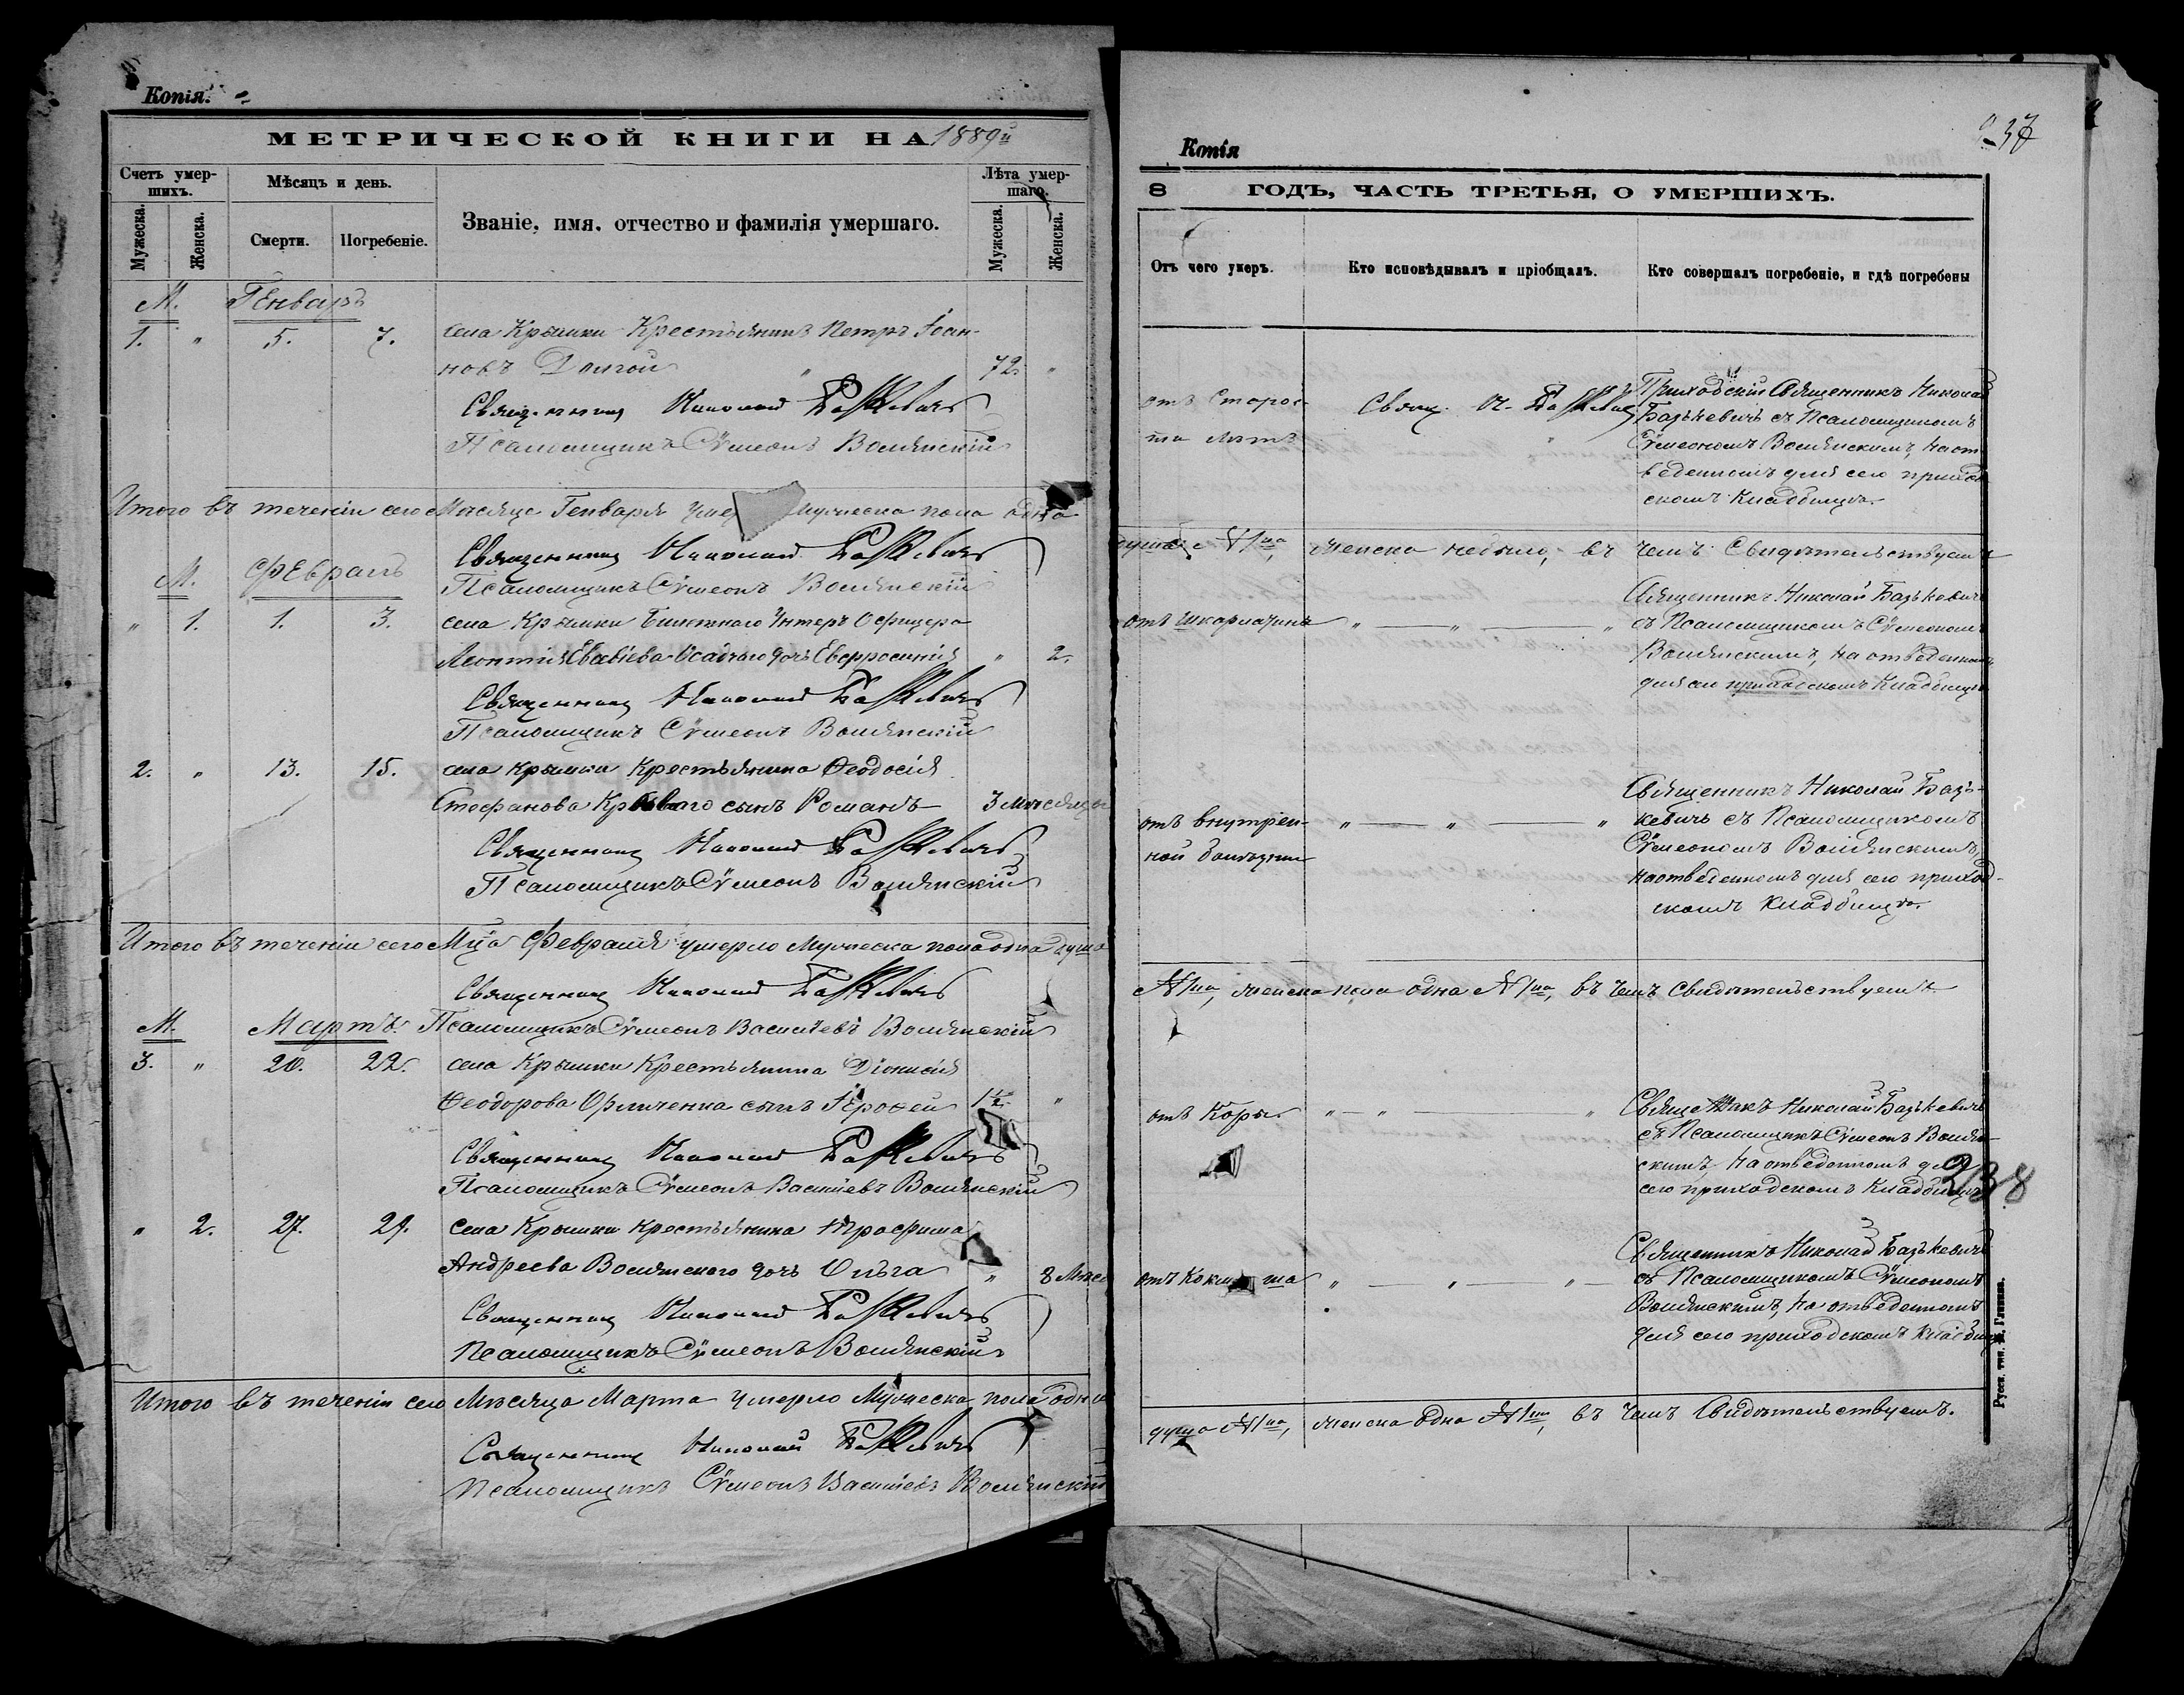 Копія.
МЕТРИЧЕСКОЙ КНИГИ НА 1889й
Счетъ умер-
шихъ.
Мѣсяцъ и день.
Званіе, имя, отчество и фамилія умершаго.
Лѣта умер-
шаго.
Мужеска.
Женска.
Смерти.
Погребеніе.
Мужеска.
Женска.
М. Генварь
1. " 5. 7. села Крымки Крестьянинъ Петръ Іоан-
новъ Долгой " 72. "
Священникъ Николай Базькевичъ
Псаломщикъ Сѵмеонъ Волянскій
Итого въ теченіи сего Мѣсяца Генваря Мужеска пола одна
Священникъ Николай Базькевичъ
М. Февраль
Псаломщикъ Сѵмеонъ Волянскій
" 1. 1. 3. села Крымки Билетнаго Унтеръ Офицера
Леонтія Осадчаго дочь Евфросинія " 2.
Священникъ Николай Базькевичъ
Псаломщикъ Сѵмеонъ Волянскій
2. " 13. 15. села Крымки Крестьянина Ѳеодосія
Стефанова сынъ Романъ 3 Мѣсяцы
Священникъ Николай Базькевичъ
Псаломщикъ Сѵмеонъ Волянскій
Итого въ теченіи сего Мца Февраля умерло Мужеска пола одна душа
Священникъ Николай Базькевичъ
М. Мартъ. Псаломщикъ Сѵмеонъ Василіевъ Волянскій
3. " 20. 22. села Крымки Крестьянина Діонисія
Ѳеодорова сынъ Іероѳей 1½. "
Священникъ Николай Базькевичъ
Псаломщикъ Сѵмеонъ Василіевъ Волянскій
" 2. 27. 29. села Крымки Крестьянина Трофима
Андреева Волянского дочь Ольга " 8 Мѣся
Священникъ Николай Базькевичъ
Псаломщикъ Сѵмеонъ Волянскій
Итого въ теченіи сего Мѣсяца Марта умерло Мужеска пола одна
Священникъ Николай Базькевичъ
Псаломщикъ Сѵмеонъ Василіевъ Волянскій
237
Копія
8 ГОДЪ, ЧАСТЬ ТРЕТЬЯ, О УМЕРШИХЪ.
Отъ чего умеръ.
Кто исповѣдывалъ и пріобщалъ.
Кто совершалъ погребеніе, и гдѣ погребены
отъ Старос-
ти лѣтъ
Свящ. Н. Базькевичъ
Приходскій Священникъ Николай
Базькевичъ съ Псаломщикомъ
Сѵмеономъ Волянскимъ, на от-
веденномъ для сего приход
скомъ Кладбищѣ.
душа №1на, женска небыло, въ чемъ Свидѣтельствуемъ
отъ Шкарлатины " — " — "
Священникъ Николай Базькевичъ
съ Псаломщикомъ Сѵмеономъ
Волянскимъ, на отведенномъ
для сего приходскомъ Кладбищѣ
отъ внутрен-
ной болѣзни
" — " — "
Священникъ Николай Базь-
кевичъ съ Псаломщикомъ
Сѵмеономъ Волянскимъ,
на отведенномъ для сего приход-
скомъ Кладбищѣ.
№1на, женска пола одна №1на, въ чемъ Свидѣтельствуемъ
отъ Коры. " — " — "
Священникъ Николай Базькевичъ
съ Псаломщикъ Сѵмеонъ Волян-
скимъ, на отведенномъ для
сего приходскомъ Кладбищѣ
238
отъ " — " — "
Священникъ Николай Базькевичъ
съ Псаломщикомъ Сѵмеономъ
Волянскимъ, на отведенномъ
для сего приходскомъ Кладбищѣ
душа №1на, женска одна №1на, въ чемъ Свидѣтельствуемъ.